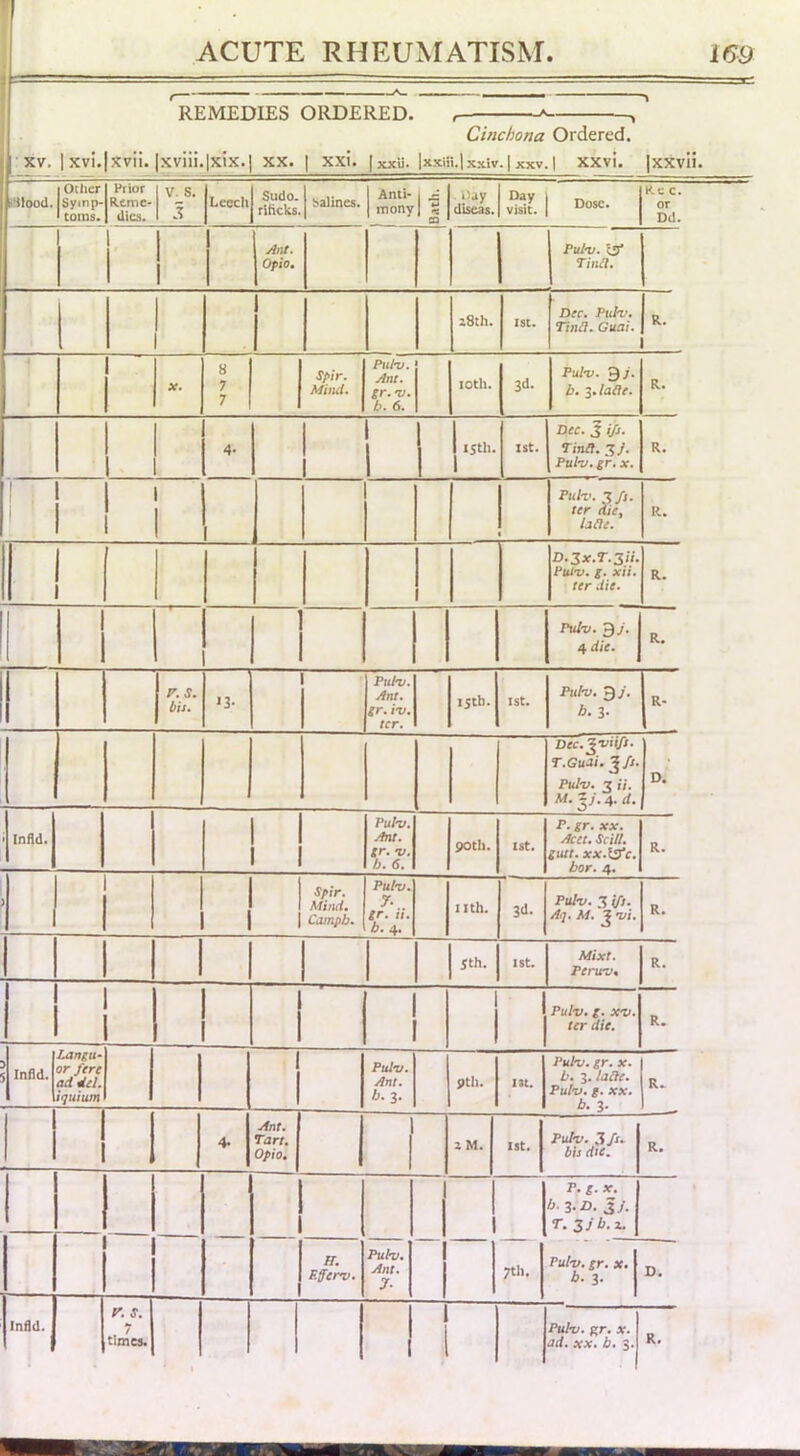 ACUTE RHEUMATISM. 169
REMEDIES ORDERED.
Cinchona Ordered.
xv. | xvi. | xvii. | xviii. | xix. | xx. | xxi. | xxii. | xxiii. | xxiv. | xxv. | xxvi. | xxvii.
Blood. | Other Symp-toms. | Prior Reme-dies. | V. S. ℥ | Leech | Sudo. rificks. | Salines. | Anti-mony | Bath. | Day diseas. | Day visit. | Dose. | Rec. or Dd.
Ant. Opio. | Pulv. & Tinct.
28th. | 1st. | Dec. Pulv. Tinct. Guai. | R.
x. | 8 7 7 | Spir. Mind. | Pulv. Ant. gr. v. h. 6. | 10th. | 3d. | Pulv. ℈j. h. 3. lacte. | R.
4. | 15th. | 1st. | Dec. ℥ ifs. Tinct. ʒj. Pulv. gr. x. | R.
Pulv. ʒ fs. ter die, lacte. | R.
D. ʒx. T. ʒii. Pulv. g. xii. ter die. | R.
Pulv. ℈j. 4 die. | R.
V. S. bis. | 13. | Pulv. Ant. gr. iv. ter. | 15th. | 1st. | Pulv. ℈j. h. 3. | R.
Dec. ℥viifs. T. Guai. ℥fs. Pulv. ʒ ii. M. ℥j. 4. d. | D.
Infld. | Pulv. Ant. gr. v. h. 6. | 90th. | 1st. | P. gr. xx. Acet. Scill. gutt. xx. &c. hor. 4. | R.
Spir. Mind. Camph. | Pulv. J. gr. ii. h. 4. | 11th. | 3d. | Pulv. ʒ ifs. Aq. M. ℥vi. | R.
5th. | 1st. | Mixt. Peruv. | R.
Pulv. g. xv. ter die. | R.
Infld. | Langu-or fere ad del. iquium | Pulv. Ant. h. 3. | 9th. | 1st. | Pulv. gr. x. h. 3. lacte. Pulv. g. xx. h. 3. | R.
4. | Ant. Tart. Opio. | 2 M. | 1st. | Pulv. ʒfs. bis die. | R.
P. g. x. h. 3. D. ℥j. T. ʒj h. 2.
H. Efferv. | Pulv. Ant. J. | 7th. | Pulv. gr. x. h. 3. | D.
Infld. | V. S. 7 times. | Pulv. gr. x. ad. xx. h. 3. | R.